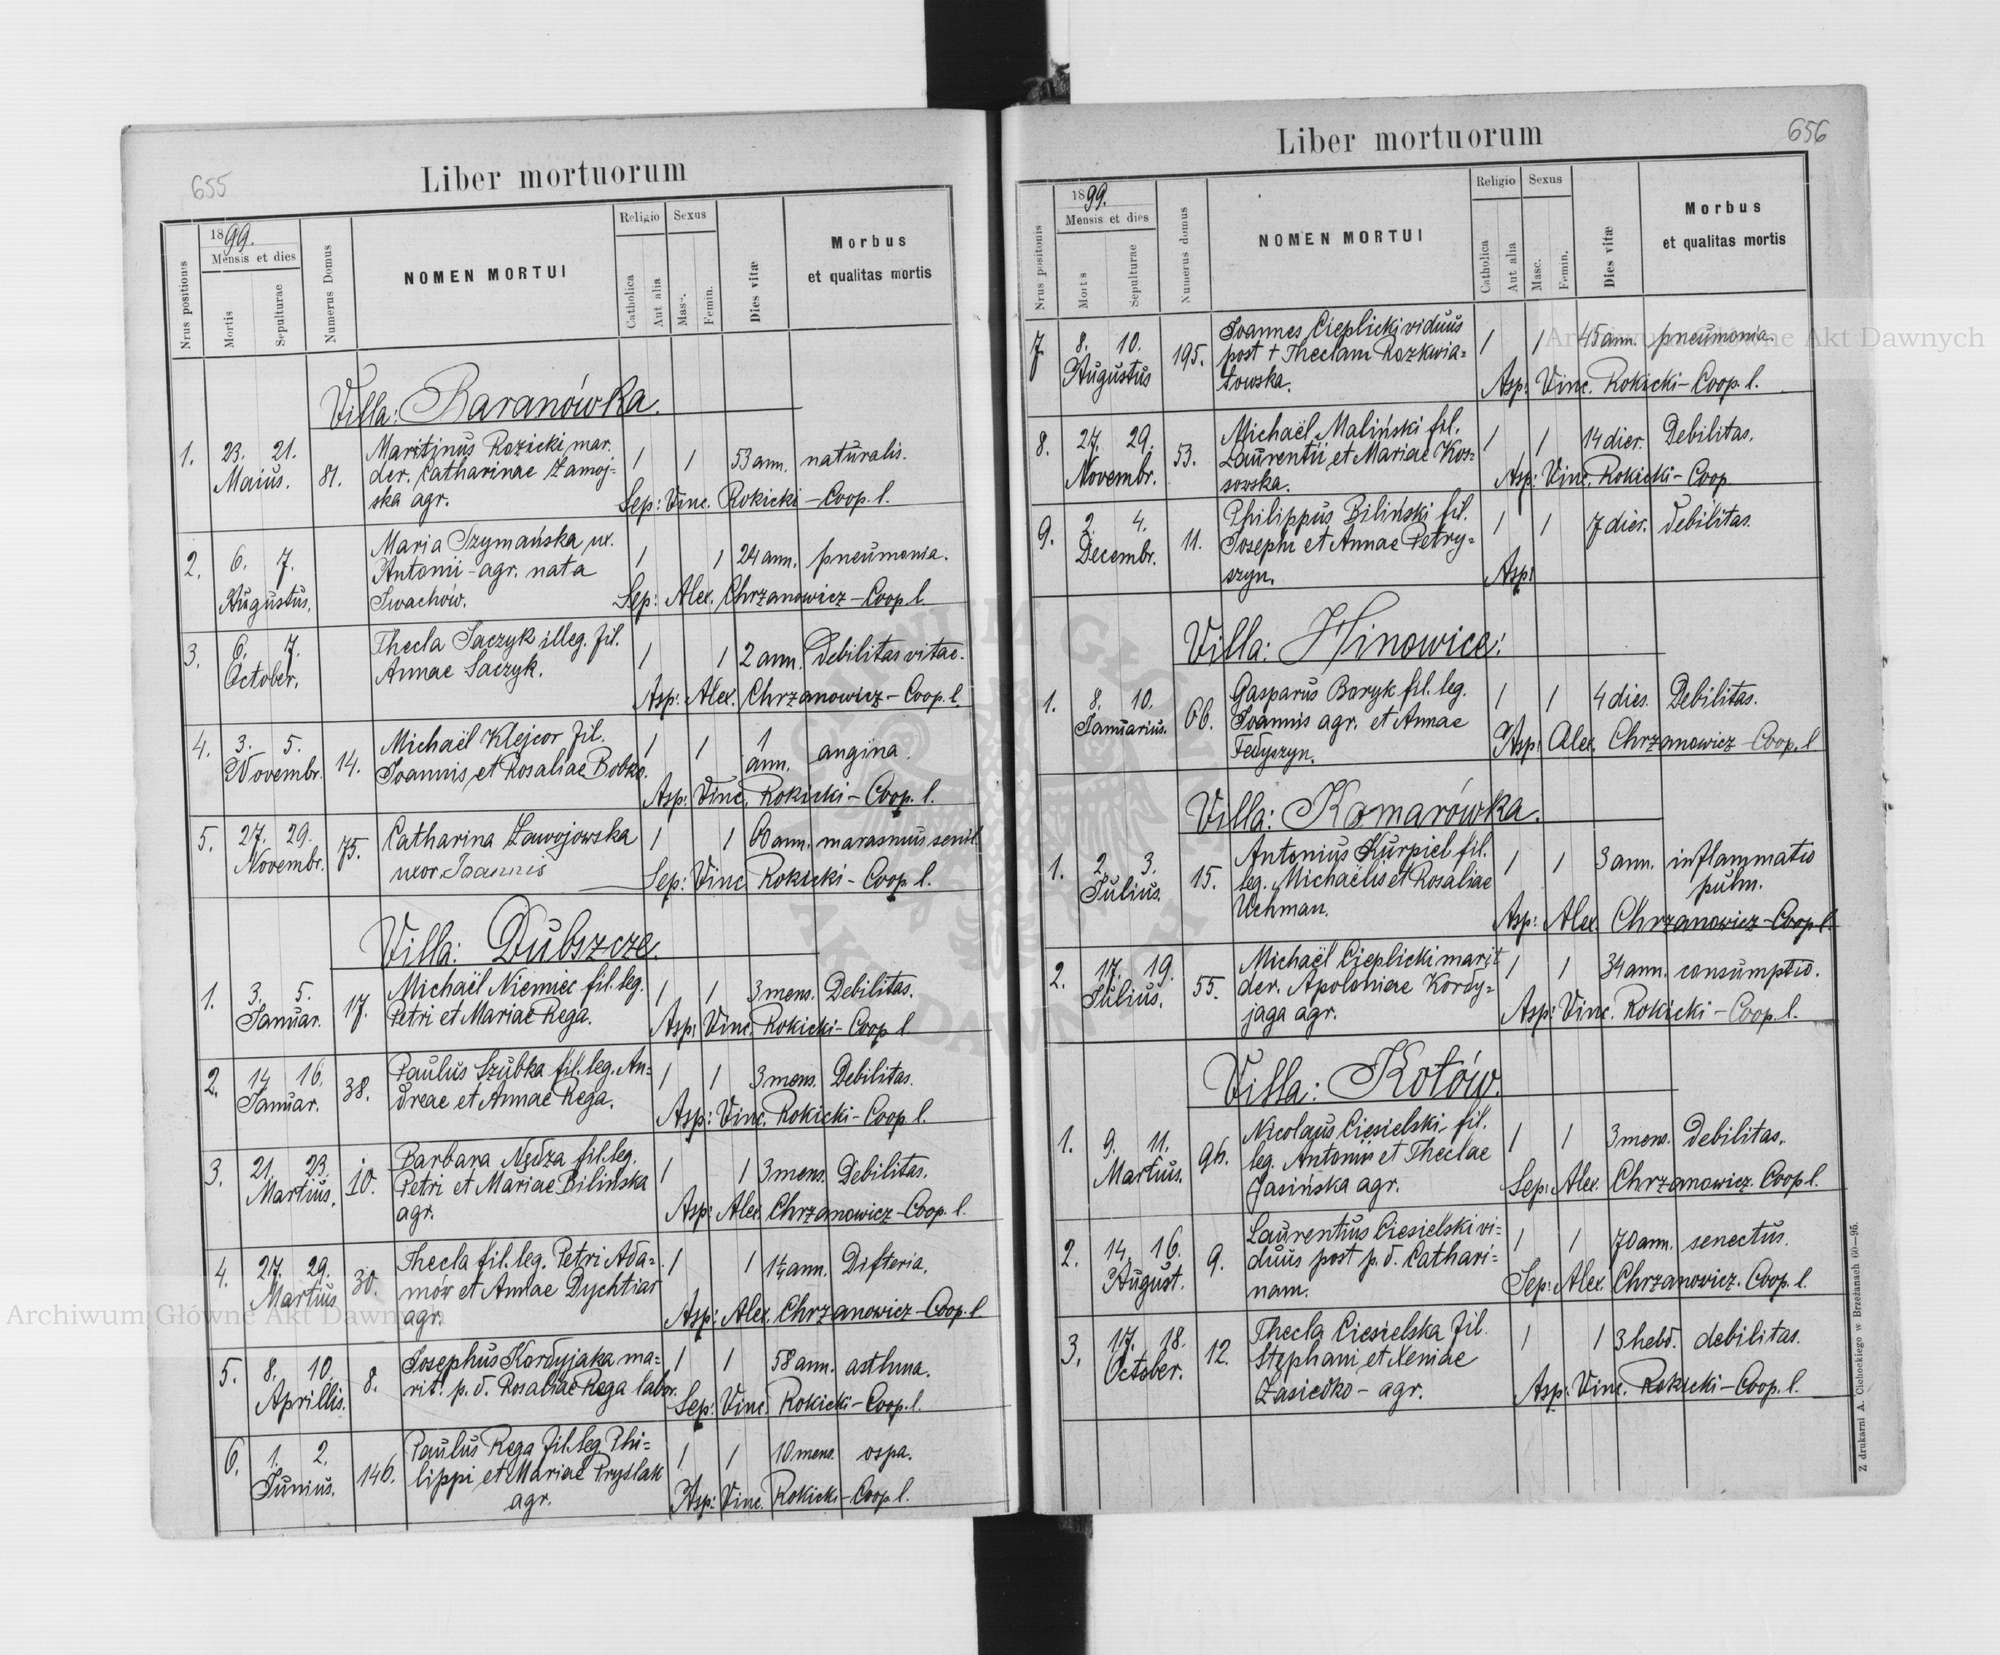 655
Liber mortuorum
Nrus positionis
1899.
Mensis et dies
Mortis
Sepulturae
Numerus Domus
NOMEN MORTUI
Religio
Catholica
Aut alia
Sexus
Masc.
Femin.
Dies vitæ
Morbus
et qualitas mortis
Villa: Baranówka.
1. 23. 21. Maius. 81.
Maritinus Rozicki mar.
der. Catharinae Zamoj-
ska agr.
1 1 53 ann. naturalis.
Sep: Vinc. Rokicki - Coop. l.
2. 6. 7. Augustus.
Maria Szymańska ux.
Antonii - agr. nata
Iwachów.
1 1 24 ann. pneumonia.
Sep: Alex. Chrzanowicz - Coop l.
3. 6. 7. October.
Thecla Saczyk illeg. fil.
Annae Saczyk.
1 1 2 ann. Debilitas vitae.
Asp: Alex. Chrzanowicz - Coop. l.
4. 3. 5. Novembr. 14.
Michaël Klejcor fil.
Joannis et Rosaliae Bobko.
1 1 1 ann. angina.
Asp: Vinc. Rokicki - Coop. l.
5. 27. 29. Novembr. 75.
Catharina Zawojowska
uxor Joannis
1 1 60 ann. marasmus senil.
Sep: Vinc Rokicki - Coop l.
Villa: Dubszcze.
1. 3. 5. Januar. 17.
Michaël Niemiec fil. leg.
Petri et Mariae Rega.
1 1 3 mens. Debilitas.
Asp: Vinc. Rokicki - Coop l
2. 14. 16. Januar. 38.
Paulus Szubka fil. leg. An=
dreae et Annae Rega.
1 1 3 mens. Debilitas.
Asp: Vinc. Rokicki - Coop l.
3. 21. 23. Martius. 10.
Barbara Nędza fil. leg.
Petri et Mariae Bilińska
agr.
1 1 3 mens. Debilitas.
Asp: Alex. Chrzanowicz - Coop. l.
4. 27. 29. Martius 30.
Thecla fil. leg. Petri Ada=
mów et Annae Dychtiar
agr.
1 1 1¼ ann. Difteria.
Asp: Alex. Chrzanowicz - Coop. l
5. 8. 10. Aprillis. 8.
Josephus Kordyjaka ma=
rit. p. d. Rosaliae Rega labor.
1 1 58 ann. asthma.
Sep: Vinc. Rokicki - Coop. l.
6. 1. 2. Junius. 146.
Paulus Rega fil. leg. Phi=
lippi et Mariae Pryslak
agr.
1 1 10 mens. ospa.
Asp: Vinc. Rokicki - Coop l.
656
Liber mortuorum
Nrus positionis
1899.
Mensis et dies
Mortis
Sepulturae
Numerus domus
NOMEN MORTUI
Religio
Catholica
Aut alia
Sexus
Masc.
Femin.
Dies vitæ
Morbus
et qualitas mortis
7. 8. 10. Augustus 195.
Joannes Cieplicki viduus
post + Theclam Rozkwia=
towska.
1 1 45 ann. pneumonia.
Asp: Vinc. Rokicki - Coop. l.
8. 27. 29. Novembr. 53.
Michaël Maliński fil.
Laurentii et Mariae Kos=
sovska.
1 1 14 dier. Debilitas.
Asp: Vinc. Rokicki - Coop
9. 2. 4. Decembr. 11.
Philippus Biliński fil.
Josephi et Annae Petry=
szyn.
1 1 7 dies. debilitas.
Asp:
Villa: Hinowice:
1. 8. 10. Januarius. 66.
Gasparus Baryk fil. leg.
Joannis agr. et Annae
Fedyszyn.
1 1 4 dies. Debilitas.
Asp: Alex. Chrzanowicz - Coop. l
Villa: Komarówka.
1. 2. 3. Julius. 15.
Antonius Kurpiel fil.
leg. Michaëlis et Rosaliae
Uchman.
1 1 3 ann. inflammatio
pulm.
Asp: Alex. Chrzanowicz - Coop l.
2. 17. 19. Julius. 55.
Michaël Cieplicki marit
der. Apoloniae Kordy=
jaga agr.
1 1 34 ann. consumptio.
Asp: Vinc. Rokicki - Coop. l.
Villa: Kotów.
1. 9. 11. Martius. 96.
Nicolaus Ciesielski fil.
leg. Antonii et Theclae
Jasińska agr.
1 1 3 mens. Debilitas.
Sep: Alex. Chrzanowicz. Coop l.
2. 14. 16. August. 9.
Laurentius Ciesielski vi=
duus post p. d. Cathari=
nam.
1 1 70 ann. senectus.
Sep: Alex. Chrzanowicz. Coop. l.
3. 17. 18. October. 12.
Thecla Ciesielska fil.
Stephani et Xeniae
Zasiedko - agr.
1 1 3 hebd. debilitas.
Asp: Vinc. Rokicki - Coop. l.
Z drukarni A. Ciehockiego w Brzeżanach 60—95.
Archiwum Główne Akt Dawnych
Archiwum Główne Akt Dawnych
ARCHIWUM GŁÓWNE AKT DAWNYCH